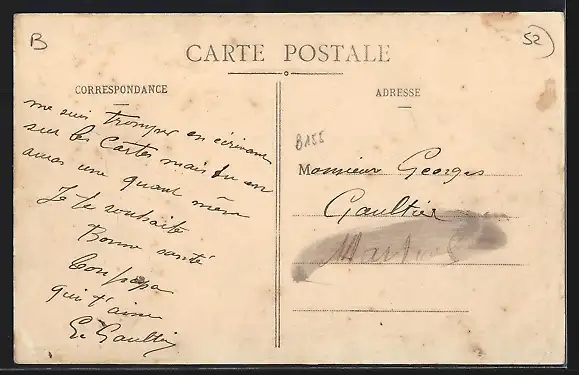 B
52
CARTE POSTALE
CORRESPONDANCE
ADRESSE
me suis tromper en écrivant
sur les cartes mais tu en
auras une quant même
Je te souhaite
Bonne santé
Ton papa
qui t'aime
G. Gaultier
B155
Monsieur Georges
Gaultier